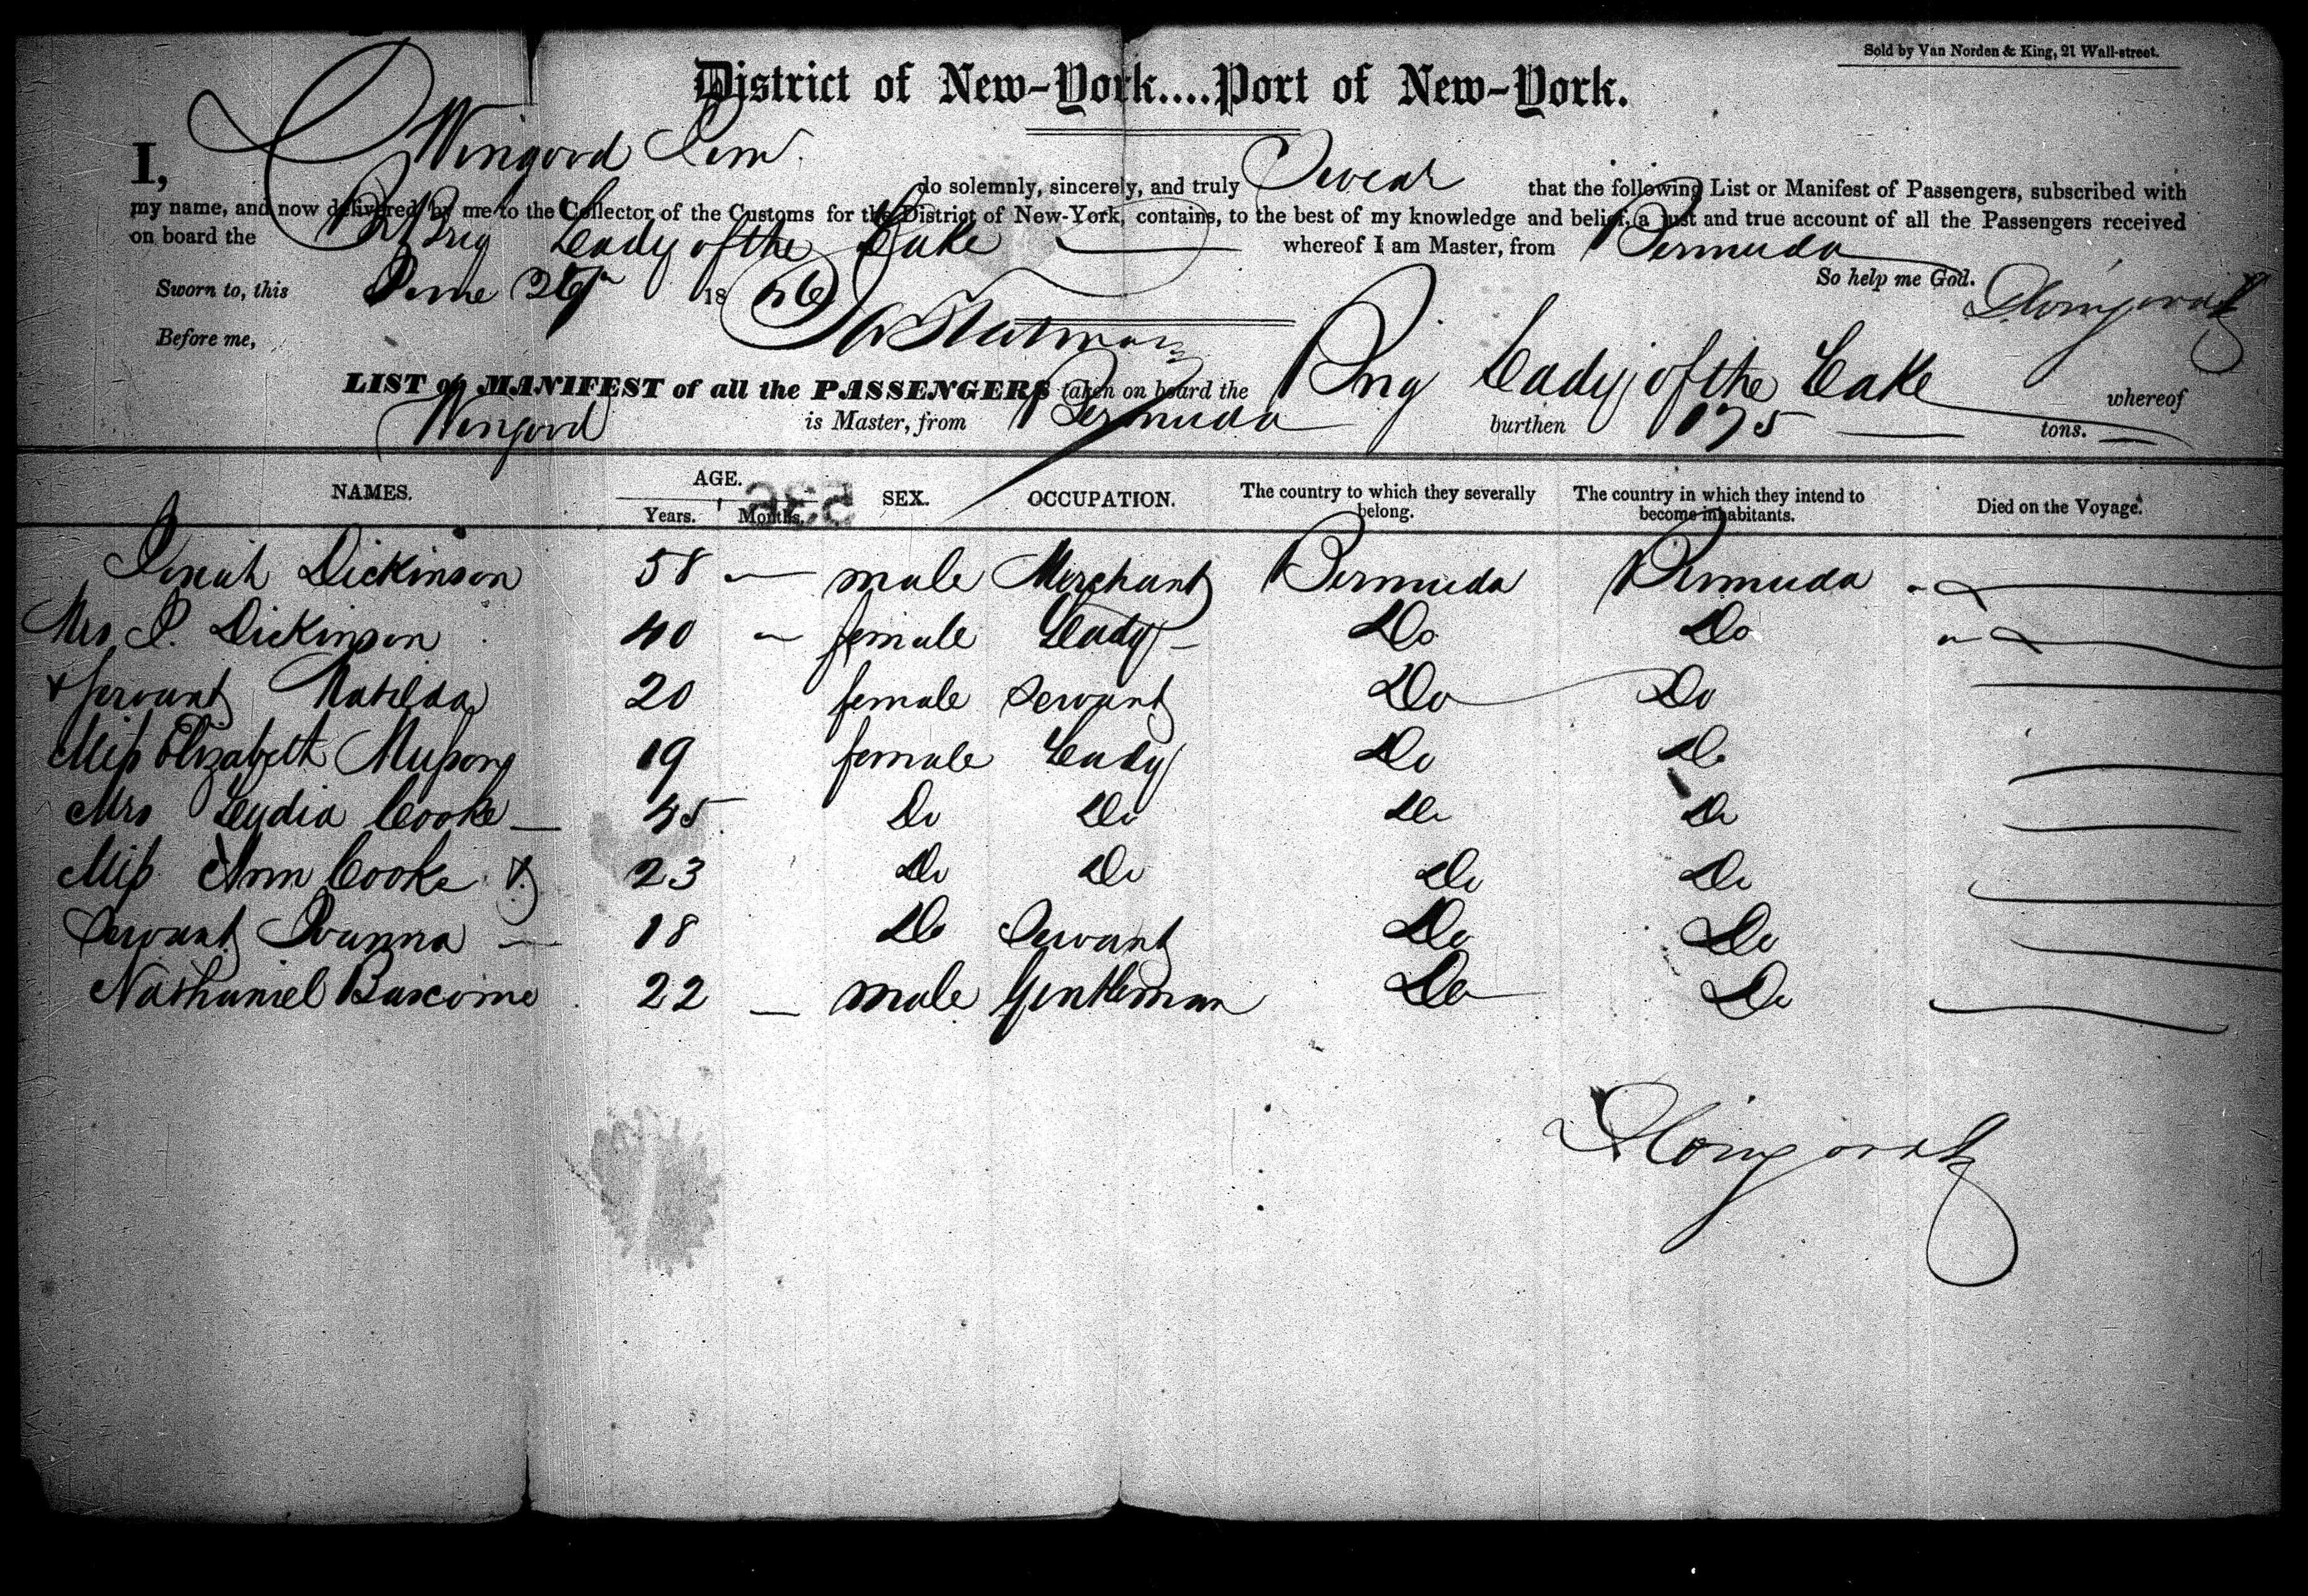 Sold by Van Norden & King, 21 Wall-street.
District of New-York....Port of New-York.
I, Wingood do solemnly, sincerely, and truly Swear that the following List or Manifest of Passengers, subscribed with
my name, and now delivered by me to the Collector of the Customs for the District of New-York, contains, to the best of my knowledge and belief, a just and true account of all the Passengers received
on board the Br Brig Lady of the Lake whereof I am Master, from Bermuda
So help me God.
Sworn to, this June 18
Before me,
LIST or MANIFEST of all the PASSENGERS taken on board the Brig Lady of the Lake whereof
Wingood is Master, from Bermuda burthen 175 tons.
NAMES. AGE. Years. Months. SEX. OCCUPATION. The country to which they severally belong. The country in which they intend to become inhabitants. Died on the Voyage.
Dickinson 58 male Merchant Bermuda Bermuda
Mrs Dickinson 40 female Lady Do Do
& Servant Matilda 20 female Servant Do Do
Miss Elizabeth Musson 19 female Lady Do Do
Mrs Lydia Cooke 45 Do Do Do Do
Miss Ann Cooke & 23 Do Do Do Do
Servant 18 Do Servant Do Do
Nathaniel Bascome 22 male Gentleman Do Do